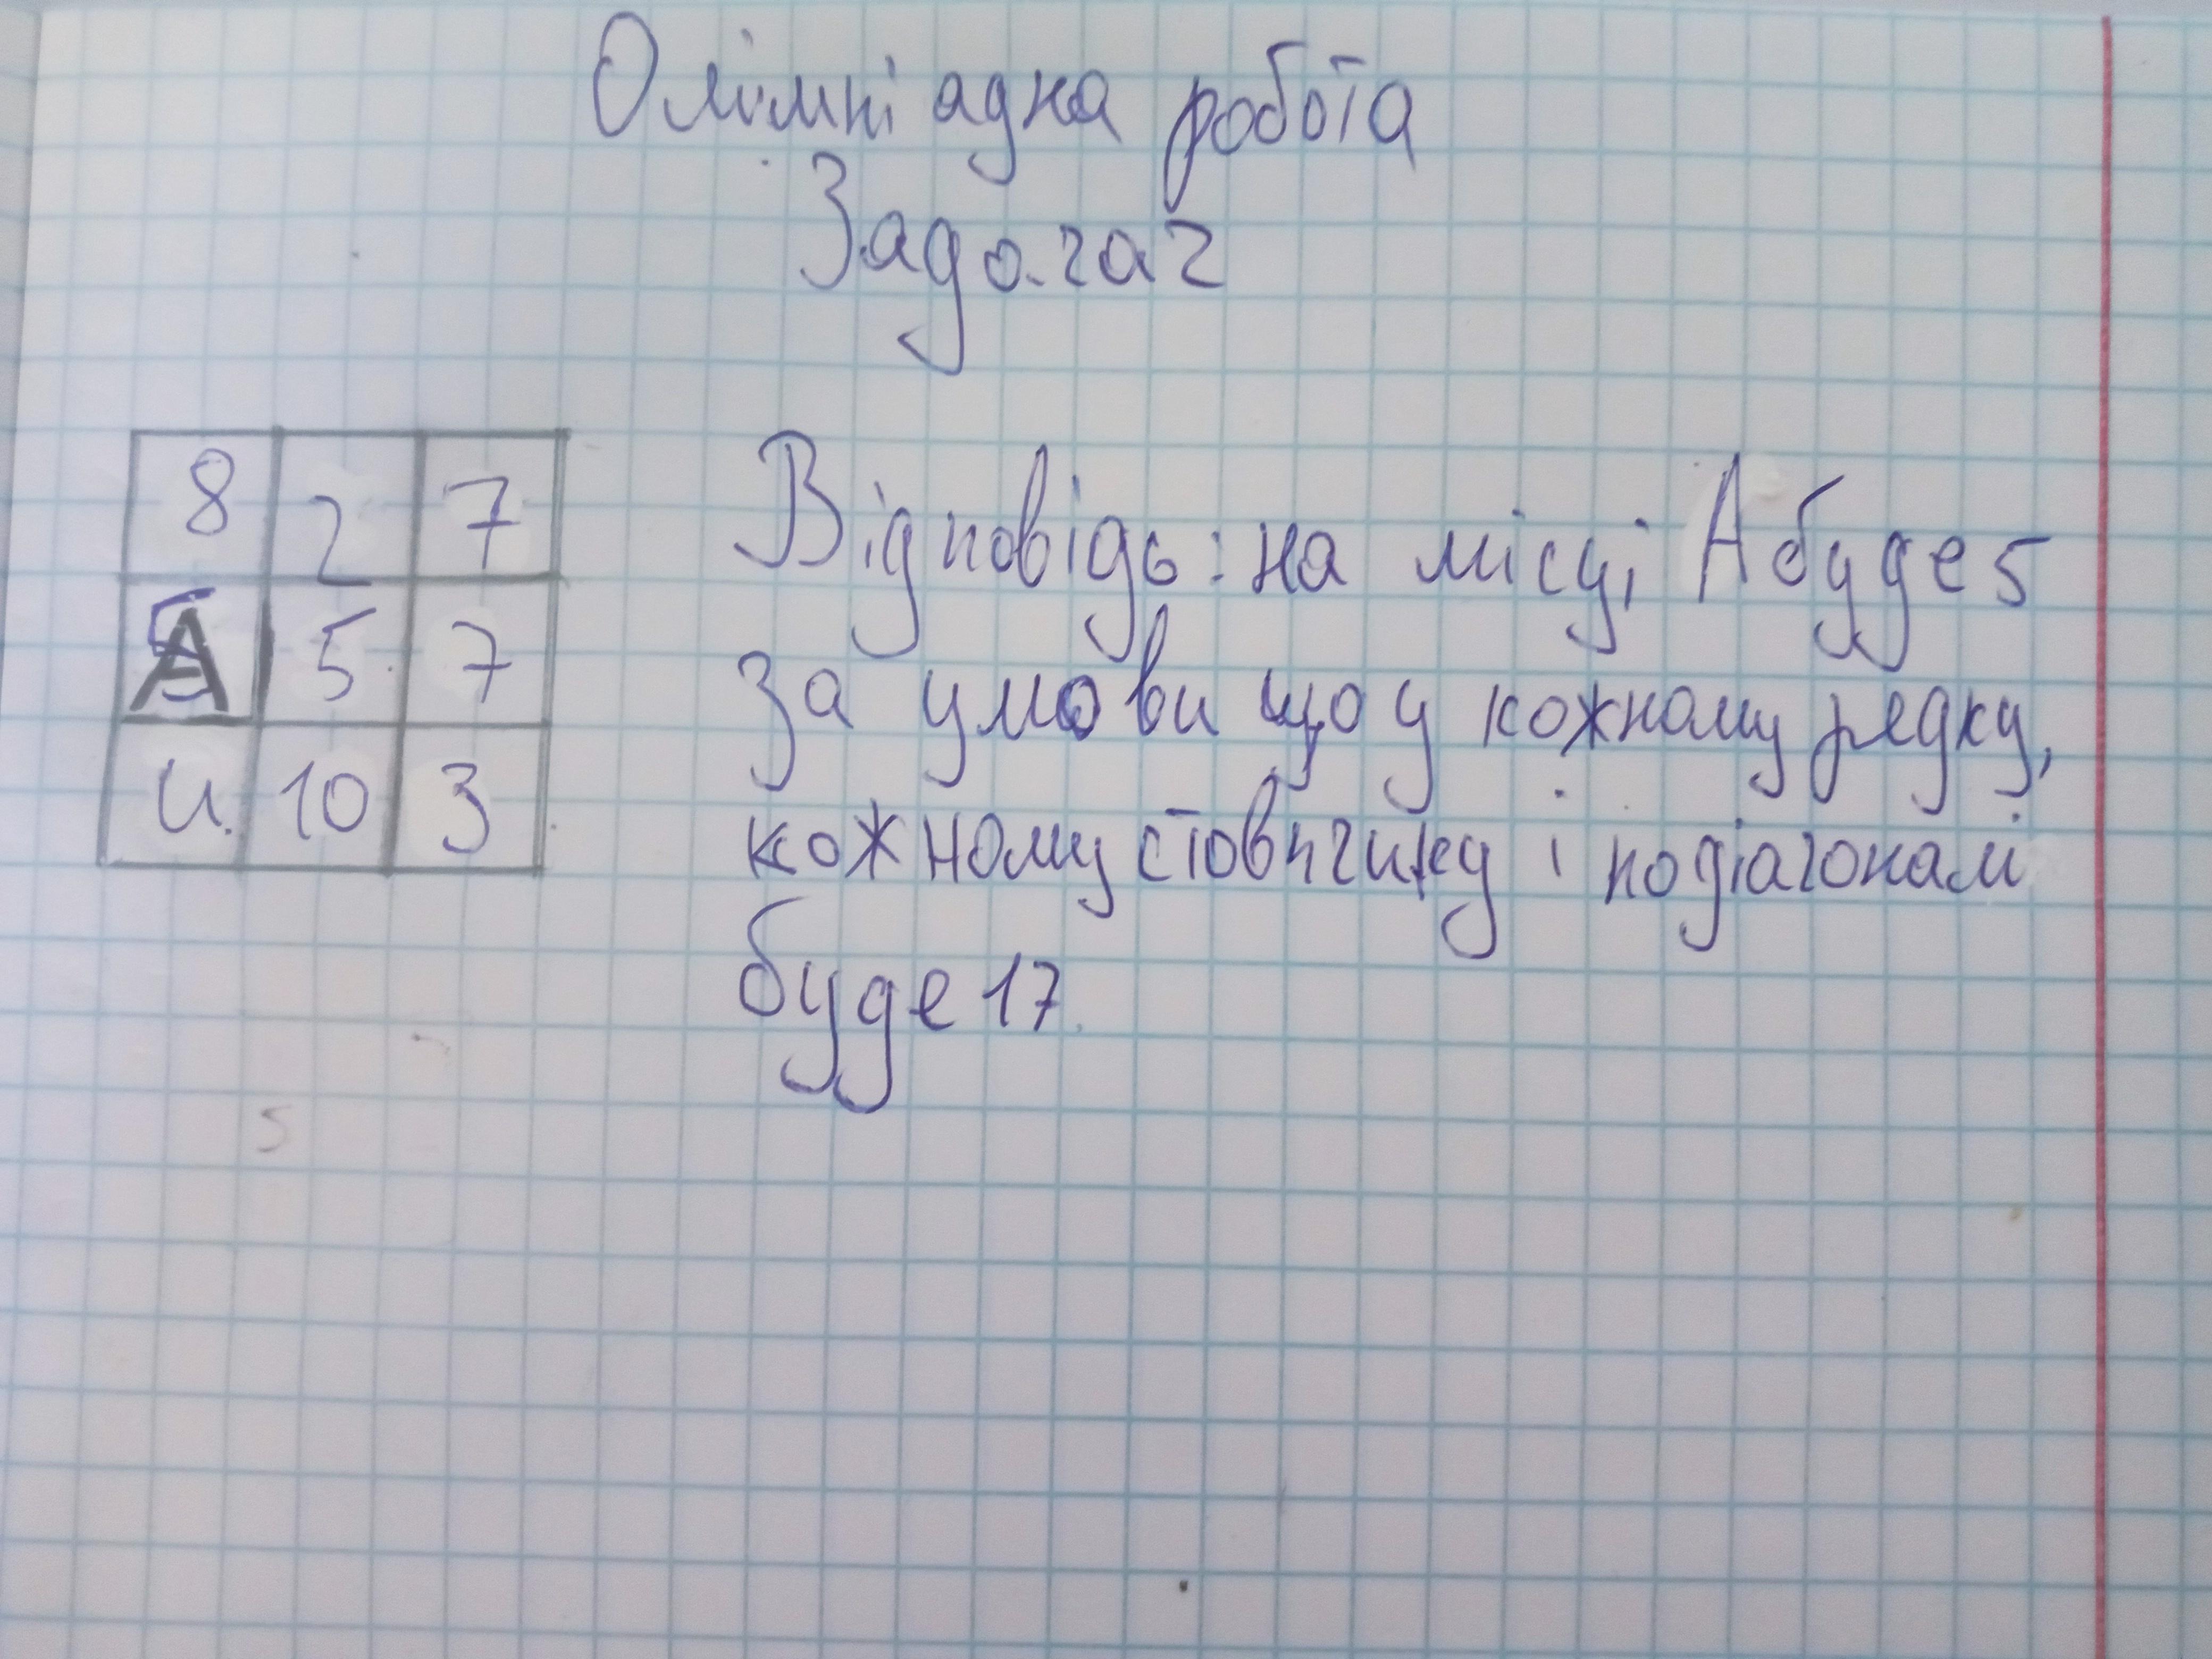 Олімпіадна робота
Задача 2
8 2 7
А 5 7
4 10 3
Відповідь: на місці А буде 5
за умови що у кожному рядку,
кожному стовпчику і по діагоналі
буде 17.
5